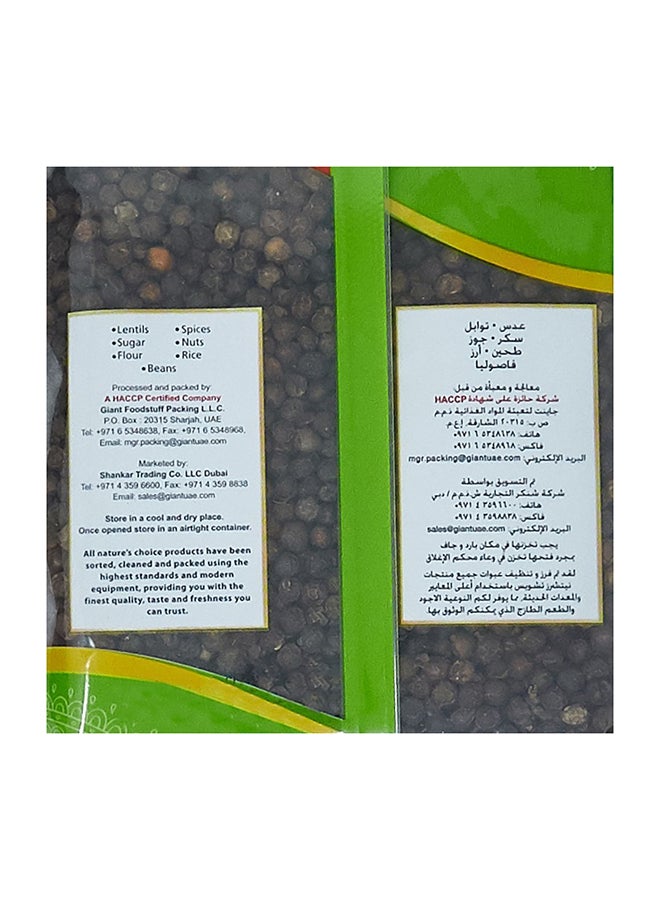 •Lentils •Spices
•Sugar •Nuts
•Flour •Rice
•Beans
Processed and packed by:
A HACCP Certified Company
Giant Foodstuff Packing L.L.C.
P.O. Box : 20315 Sharjah, UAE
Tel: +971 6 5348638, Fax: +971 6 5348968,
Email: mgr.packing@giantuae.com
Marketed by:
Shankar Trading Co. LLC Dubai
Tel: +971 4 359 6600, Fax: +971 4 359 8838
Email: sales@giantuae.com
Store in a cool and dry place.
Once opened store in an airtight container.
All nature's choice products have been
sorted, cleaned and packed using the
highest standards and modern
equipment, providing you with the
finest quality, taste and freshness you
can trust.
عدس • توابل
سكر • جوز
طحين • أرز
فاصوليا
معالجة و معبأة من قبل:
شركة حائزة على شهادة HACCP
جاينت لتعبئة المواد الغذائية ذ.م.م
ص ب: ٢٠٣١٥ الشارقة، إ.ع.م
هاتف: ٥٣٤٨٦٣٨ ٦ ٠٩٧١
فاكس: ٥٣٤٨٩٦٨ ٦ ٠٩٧١
البريد الإلكتروني: mgr.packing@giantuae.com
تم التسويق بواسطة
شركة شنكر التجارية ش.ذ.م.م / دبي
هاتف: ٣٥٩٦٦٠٠ ٤ ٠٩٧١
فاكس: ٣٥٩٨٨٣٨ ٤ ٠٩٧١
البريد الإلكتروني: sales@giantuae.com
يجب تخزنها في مكان بارد و جاف
بمجرد فتحها تخزن في وعاء محكم الإغلاق
لقد تم فرز و تنظيف عبوات جميع منتجات
نيتشرز تشويس باستخدام أعلى المعايير
والمعدات الحديثة، مما يوفر لكم النوعية الاجود
والطعم الطازج الذي يمكنكم الوثوق بها.